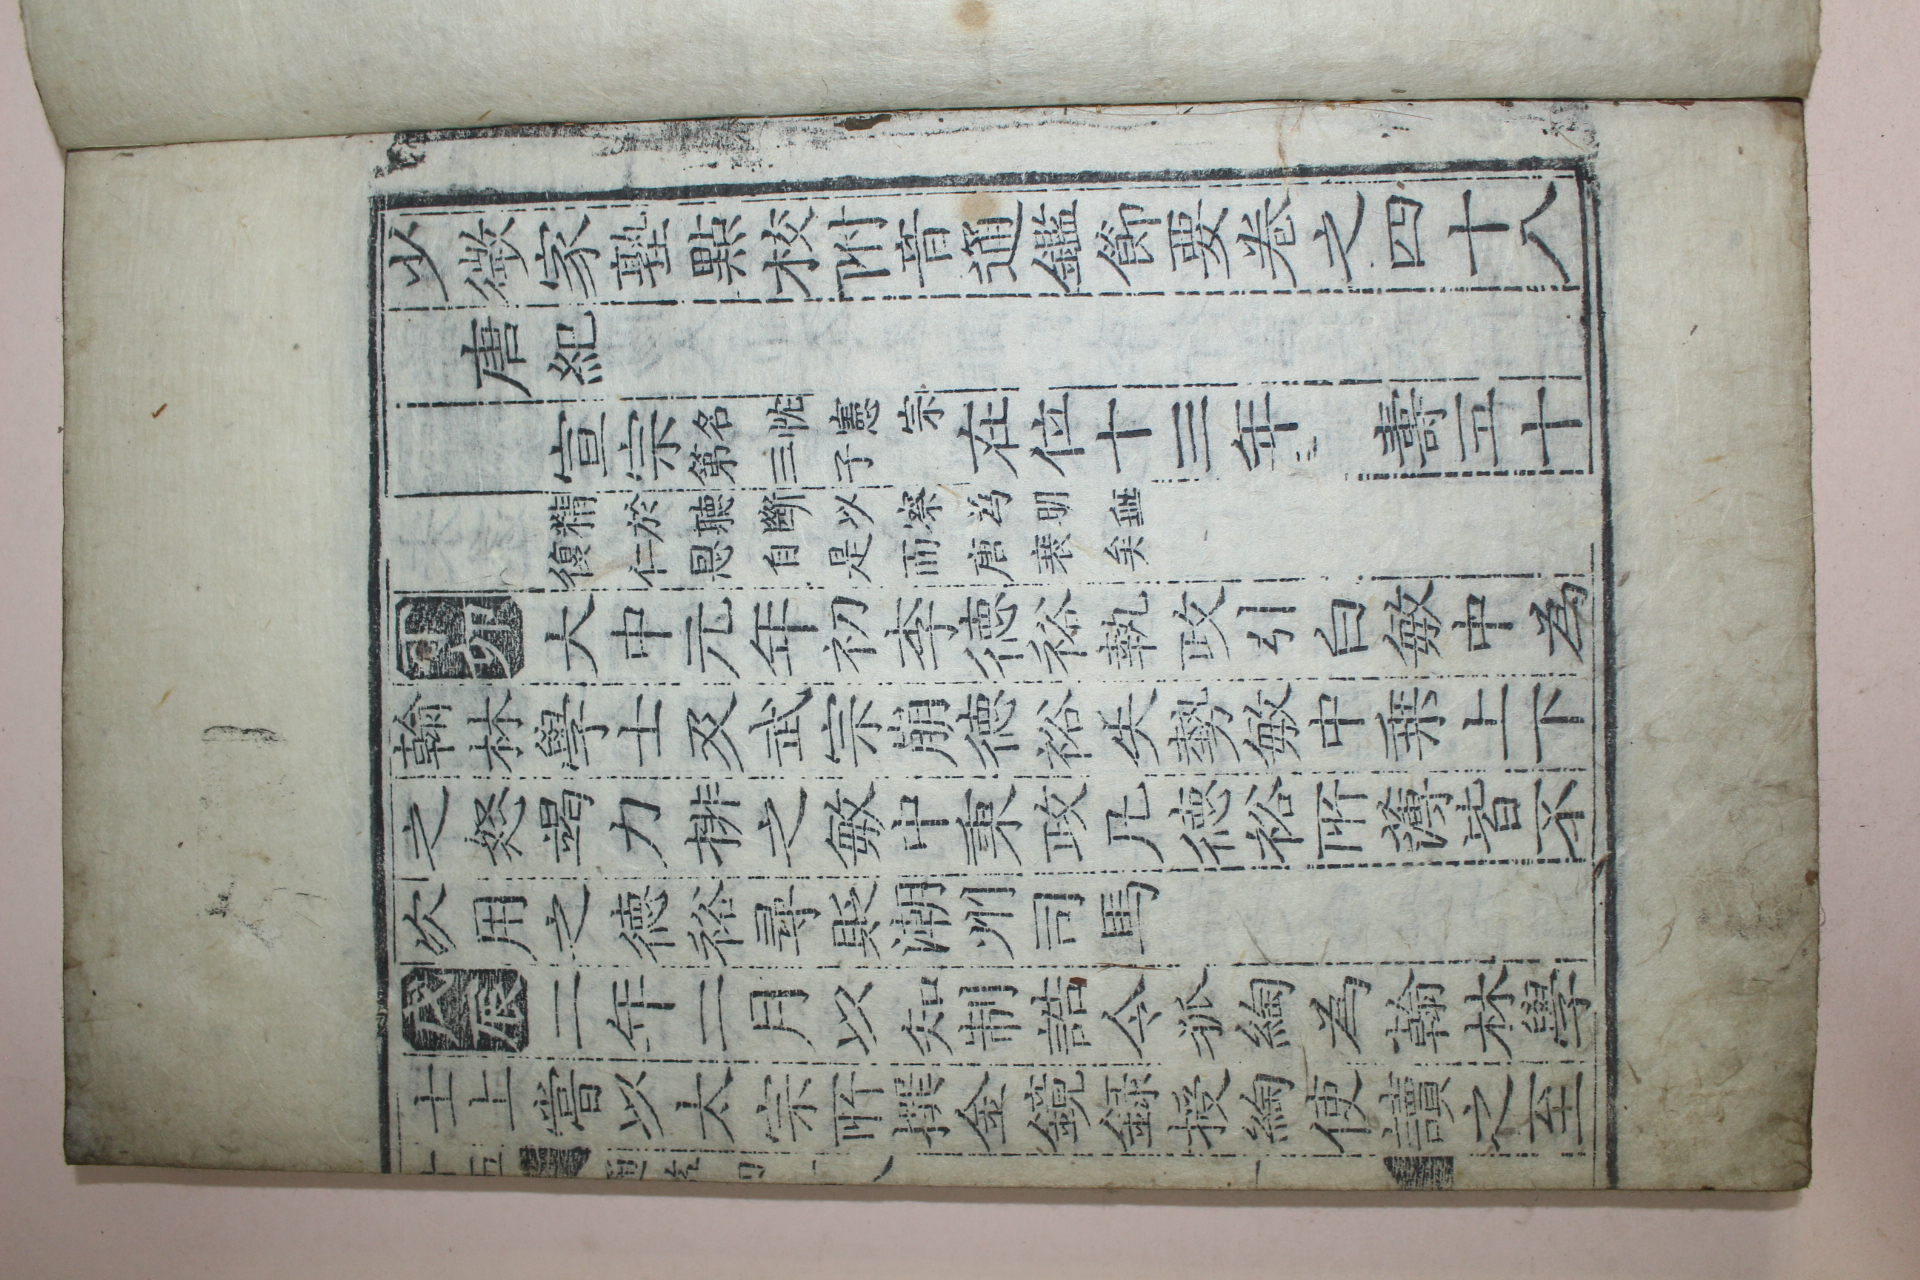 少微家塾點校附音通鑑節要卷之四十八
唐紀
宣宗名忱憲宗第三子在位十三年壽五十
精於聽斷以察為明無
復仁恩自是而唐衰矣
丁卯大中元年初李德裕執政引白敏中為
翰林學士及武宗崩德裕失勢敏中乘上下
之怒竭力排之敏中秉政凡德裕所薄皆不
次用之德裕尋貶潮州司馬
戊辰二年二月以知制誥令狐綯為翰林學
士上嘗以太宗所撰金鏡錄授綯使讀之至